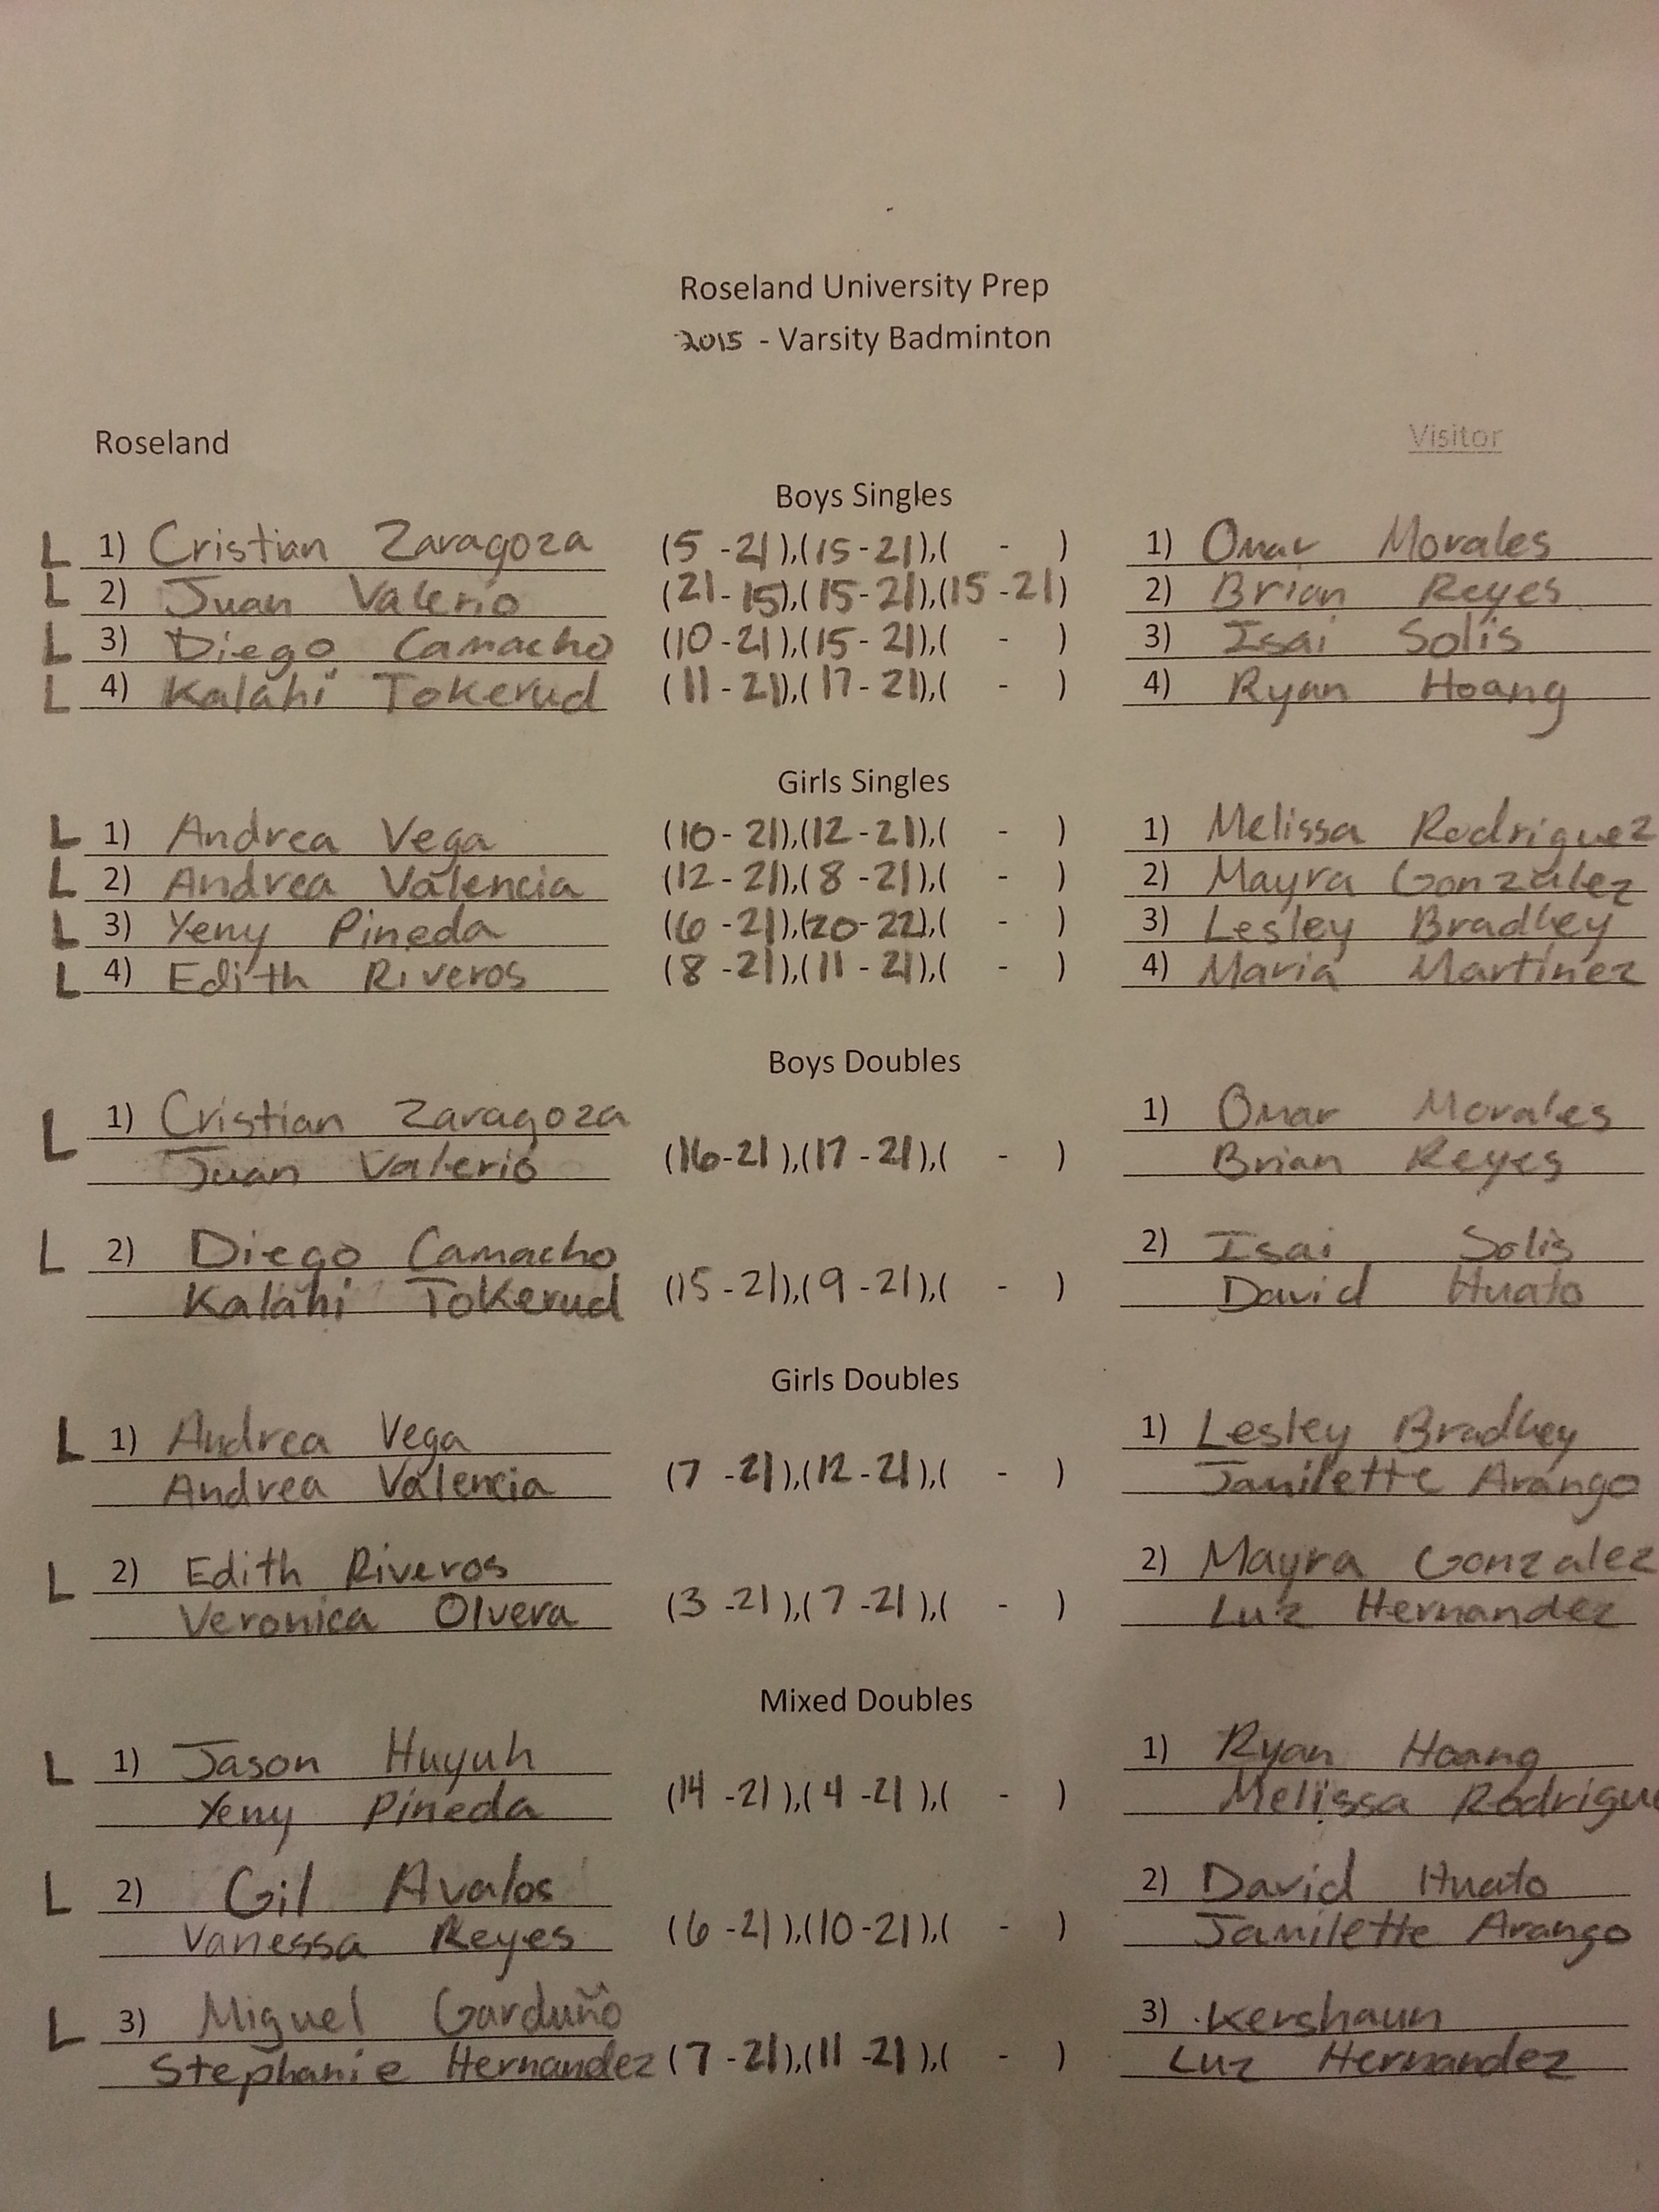 Roseland University Prep
2015 - Varsity Badminton
Roseland Visitor
Boys Singles
L 1) Cristian Zaragoza (5 -21),(15-21),( - ) 1) Omar Morales
L 2) Juan Valerio (21-15),(15-21),(15-21) 2) Brian Reyes
L 3) Diego Camacho (10-21),(15-21),( - ) 3) Isai Solis
L 4) Kalahi Tokerud (11-21),(17-21),( - ) 4) Ryan Hoang
Girls Singles
L 1) Andrea Vega (10-21),(12-21),( - ) 1) Melissa Rodriguez
L 2) Andrea Valencia (12-21),(8-21),( - ) 2) Mayra Gonzalez
L 3) Yeny Pineda (6-21),(20-22),( - ) 3) Lesley Bradley
L 4) Edith Riveros (8-21),(11-21),( - ) 4) Maria Martinez
Boys Doubles
L 1) Cristian Zaragoza 1) Omar Morales
Juan Valerio (16-21),(17-21),( - ) Brian Reyes
L 2) Diego Camacho 2) Isai Solis
Kalahi Tokerud (15-21),(9-21),( - ) David Huato
Girls Doubles
L 1) Andrea Vega 1) Lesley Bradley
Andrea Valencia (7-21),(12-21),( - ) Jamilette Arango
L 2) Edith Riveros 2) Mayra Gonzalez
Veronica Olvera (3-21),(7-21),( - ) Luz Hernandez
Mixed Doubles
L 1) Jason Huyuh 1) Ryan Hoang
Yeny Pineda (14-21),(4-21),( - ) Melissa Rodrigue
L 2) Gil Avalos 2) David Huato
Vanessa Reyes (6-21),(10-21),( - ) Jamilette Arango
L 3) Miguel Garduño 3) Kershaun
Stephanie Hernandez (7-21),(11-21),( - ) Luz Hernandez